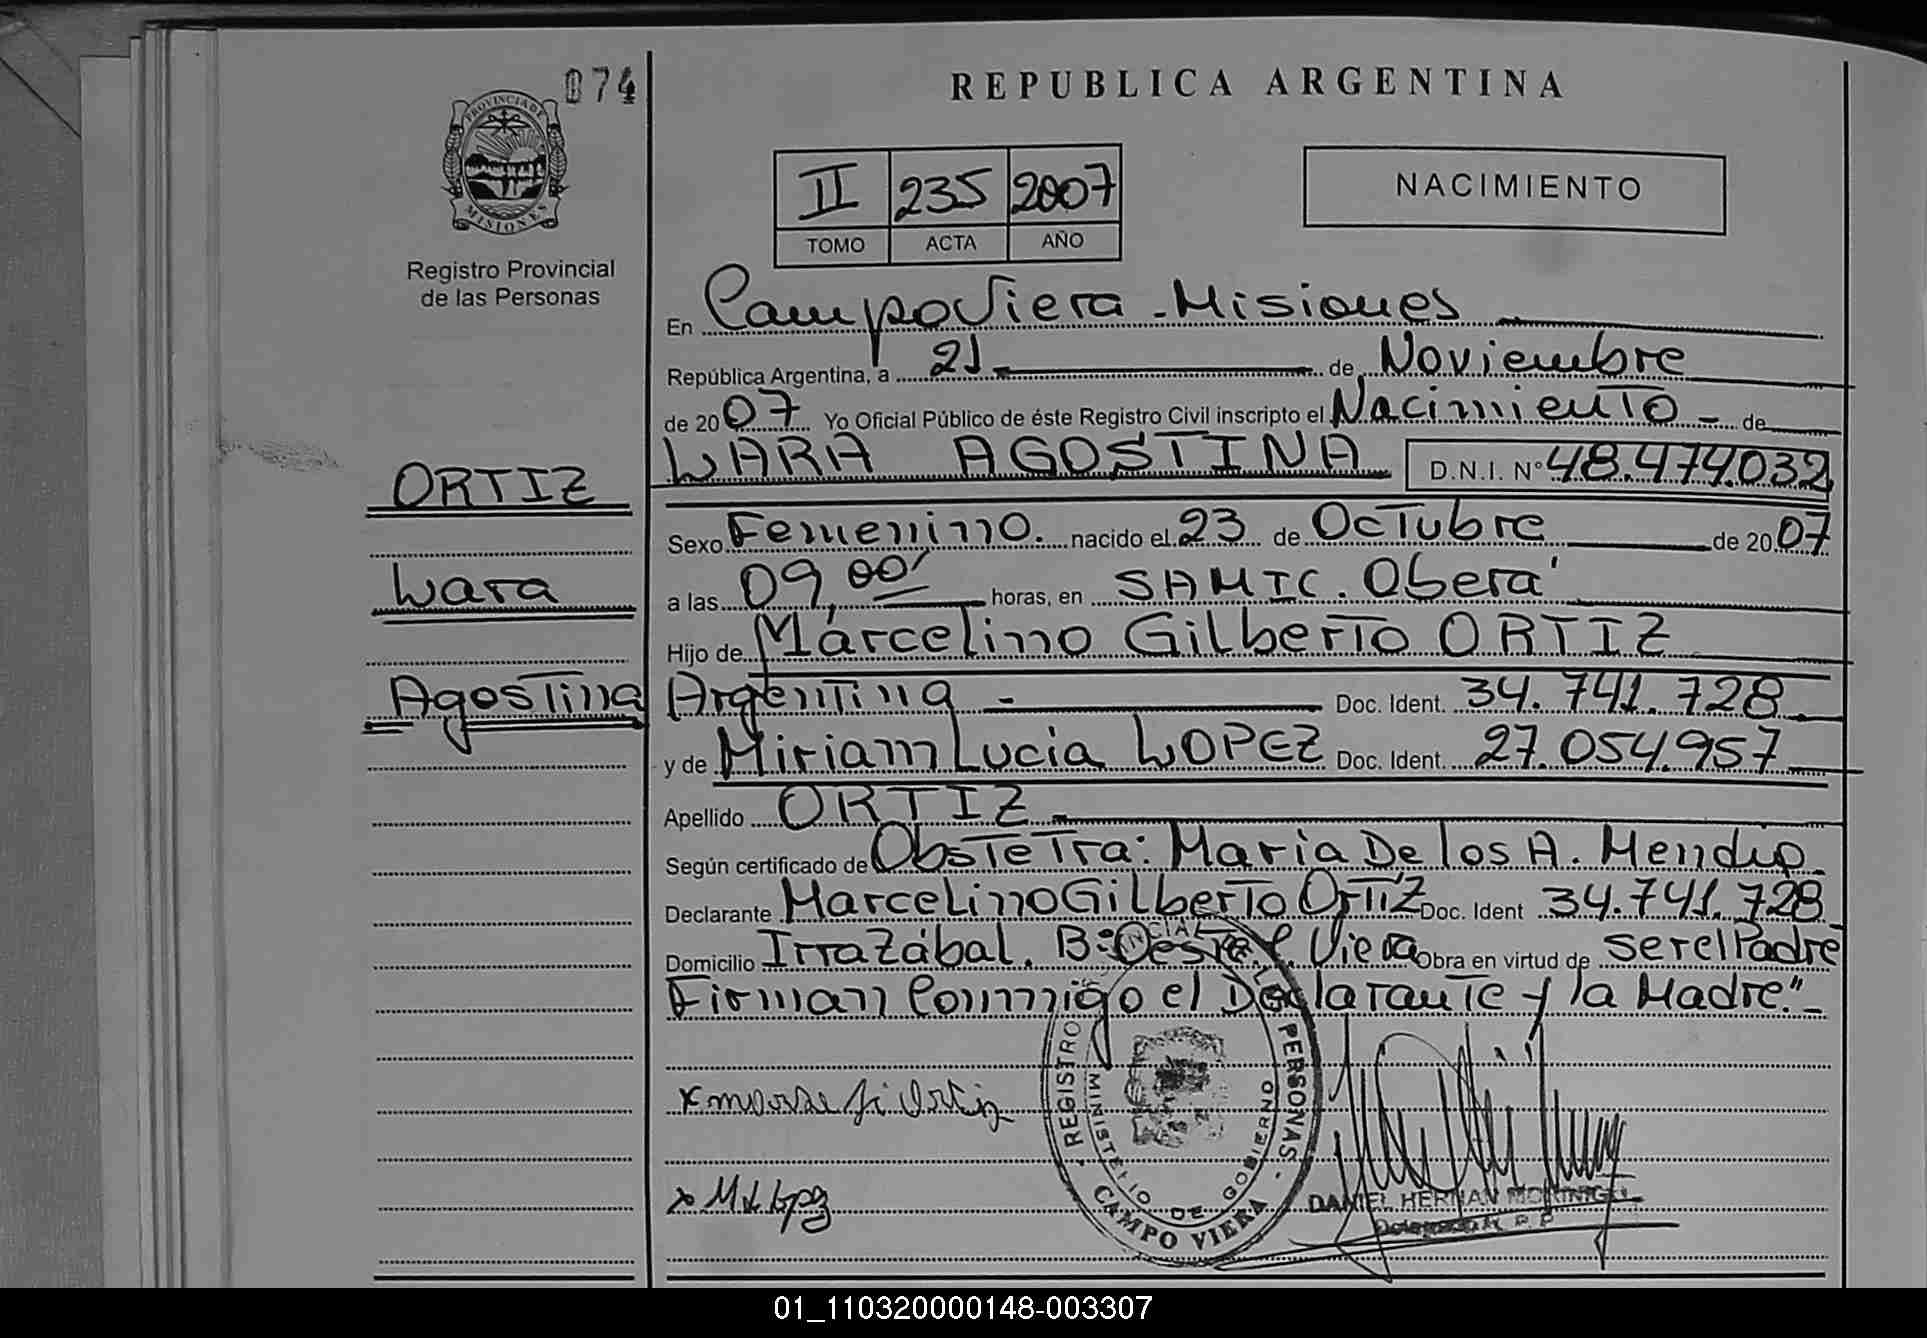 074
REPUBLICA ARGENTINA
PROVINCIA DE
MISIONES
Registro Provincial
de las Personas
II 235 2007
TOMO ACTA AÑO
NACIMIENTO
En Campo Viera - Misiones
República Argentina, a 21 de Noviembre
de 2007 Yo Oficial Público de éste Registro Civil inscripto el Nacimiento - de
LARA AGOSTINA D.N.I. N° 48.474.032
ORTIZ
Lara
Agostina
Sexo Femenino. nacido el 23 de Octubre de 2007
a las 09,00' horas, en SAMIC. Oberá
Hijo de Marcelino Gilberto ORTIZ
Argentina - Doc. Ident. 34.741.728
y de Miriam Lucia LOPEZ Doc. Ident. 27.054.957
Apellido ORTIZ
Según certificado de Obstetra: Maria De los A.
Declarante Marcelino Gilberto Ortiz Doc. Ident 34.741.728
Domicilio Irrazábal. B: Oeste C. Viera Obra en virtud de ser el Padre
Firman Conmigo el Declarante y la Madre."-
REGISTRO PROVINCIAL DE LAS PERSONAS -
MINISTERIO DE GOBIERNO
CAMPO VIERA
x Ortiz
x M L Lopez
DANIEL HERNAN MORINIGO
01_110320000148-003307